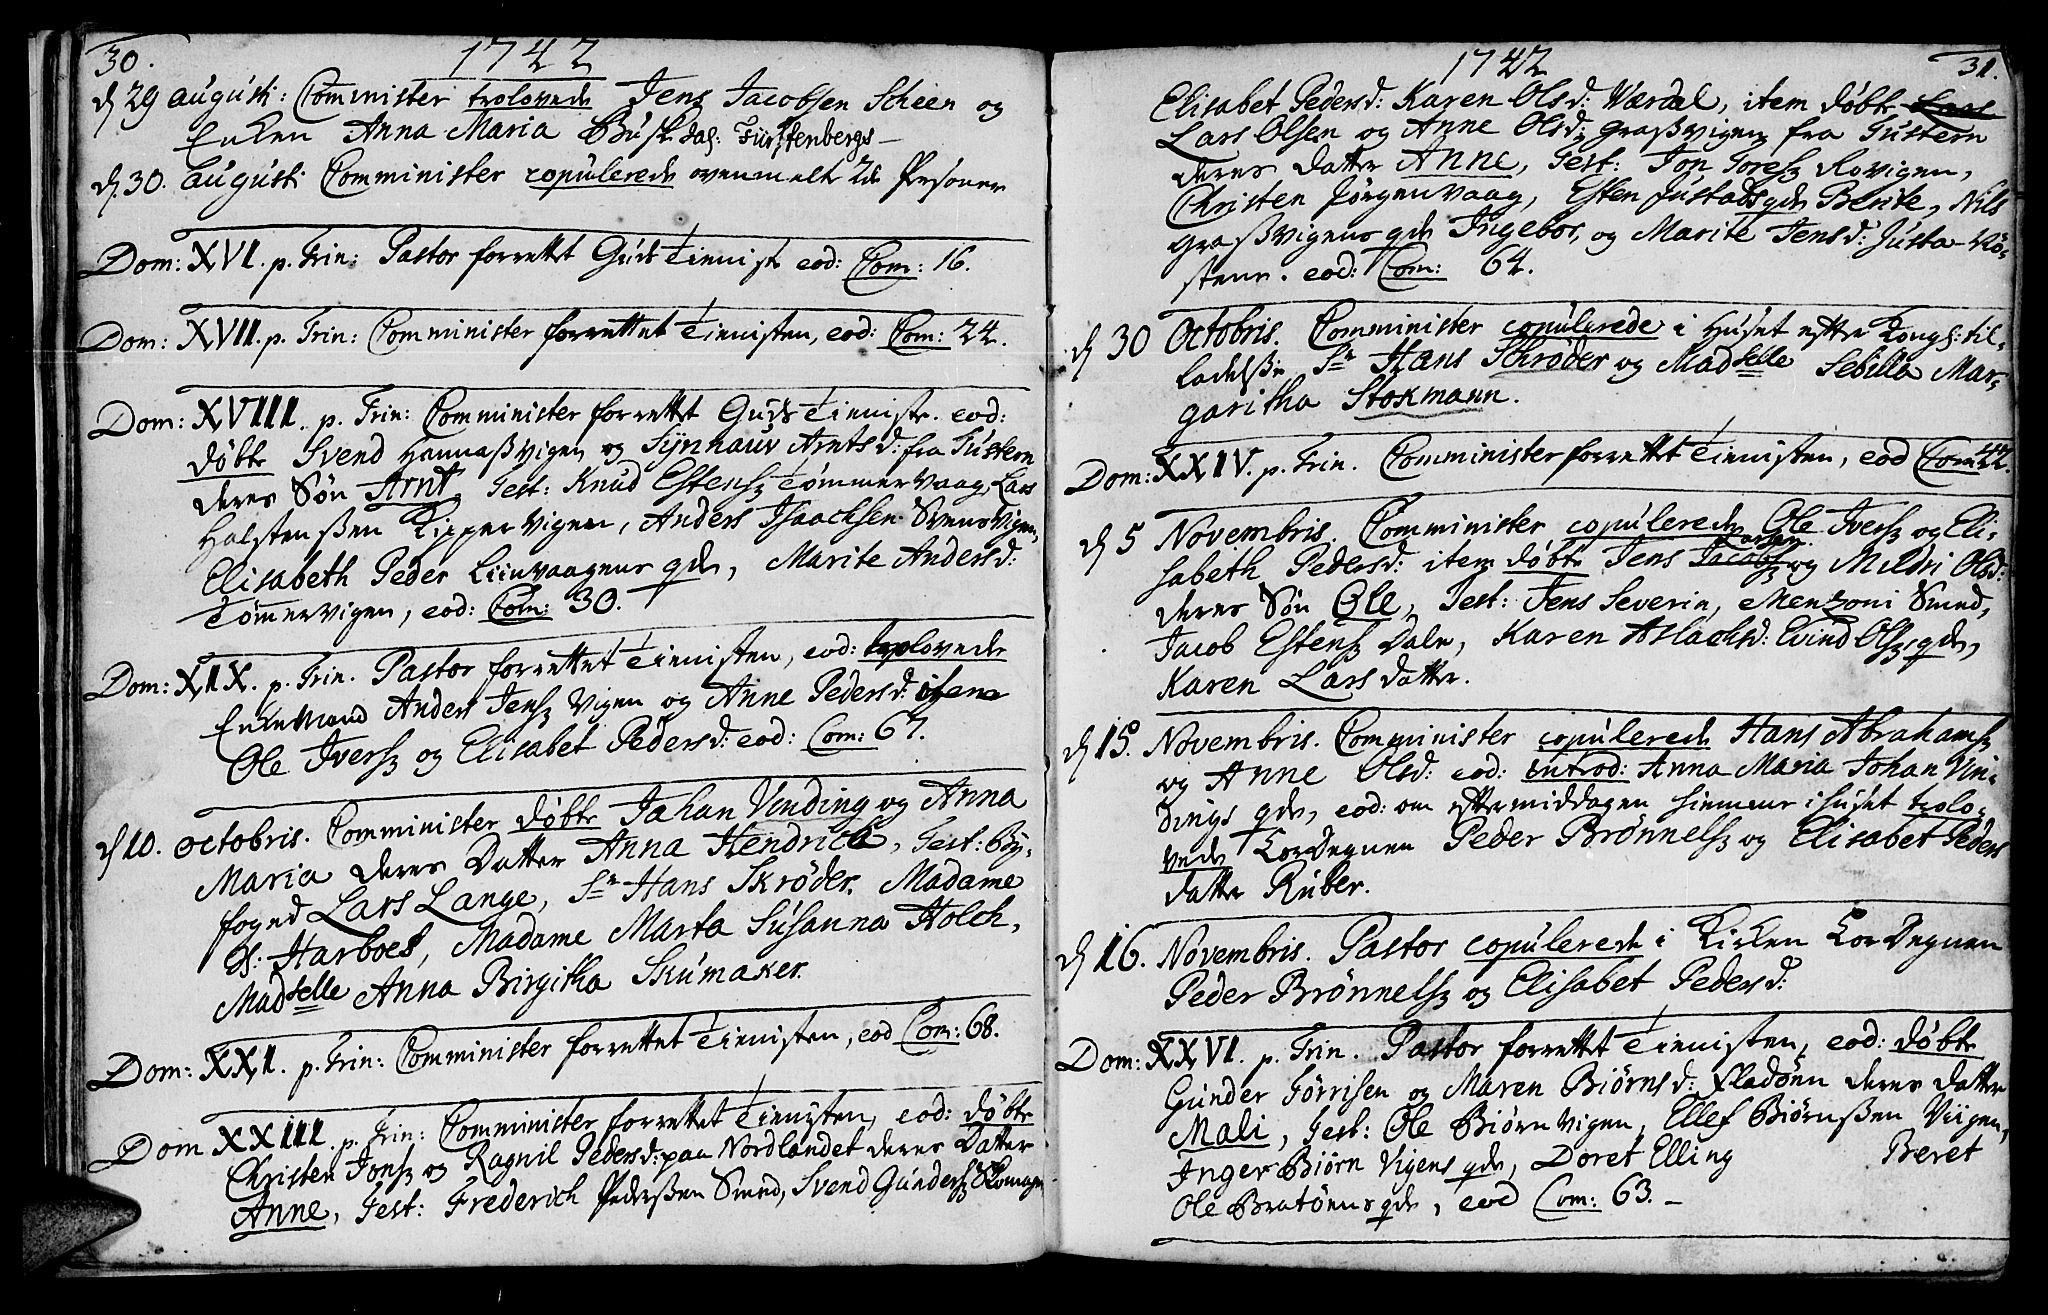 30.
1742
d 29 augusti: Comminister trolovede Jens Jacobsen Scheen og
Enken Anna Maria Busk Sal: Fürstenbergs
d. 30. augusti Comminister copulerede ovenmelte 2de Personer
Dom: XVI. p. Trin: Pastor forrettet Guds Tieniste eod: Com: 16.
Dom: XVII. p. Trin: Comminister forrettet Tienisten, eod: Com: 24.
Dom: XVIII. p. Trin: Comminister forrettet Guds Tieniste. eod:
døbte Svend Hannaßvigen og Synnauv Arnts d: fra Tustern
deres Søn Arnt, Test: Knud Estensz Tømmervaag, Lars
Halstenßen Kippervigen, Anders Isaachsen Svensvigen,
Elisabeth Peder Liinvaagens qde, Marite Anders d:
Tømmervigen, eod: Com: 30.
Dom: XIX. p. Trin. Pastor forrettet Tienisten, eod: trolovede
Enkemand Anders Jensz Vigen og Anne Peders d:
Ole Iversz og Elisabet Peders d: eod: Com: 67.
d 10. octobris. Comminister døbte Johan Vinding og Anna
Maria deres Datter Anna Hendrich, Test: By-
foged Lars Lange, Sr Hans Skrøder. Madame
Harboes, Madame Marta Susanna Holch,
Madselle Anna Birgitha Skumaker.
Dom: XXI. p. Trin: Comminister forrettet Tienisten, eod Com: 68.
Dom XXIII. p. Trin: Comminister forrettet Tienisten, eod: døbte
Christen Jonsz og Ragnil Peders d: paa Nordlandet deres Datter
Anne, Test: Frederich Pederßen Smed, Svend Gundersz Skomager
1742
31.
Elisabet Peders d: Karen Ols d: Værdal, item døbte Lars
Lars Olsen og Anne Ols d: Graßvigen fra Tustern
deres datter Anne, Test: Jon Toresz Rovigen,
Christen Jørgenvaag, Esten Justads qde Berite, Nils
Graßvigens qde Ingebor, og Marite Jens d: Justa-Rø-
stene. eod: Com: 64.
d 30 Octobris. Comminister copulerede i Huset efter Kongl: til-
ladelße Sr Hans Schrøder og Madselle Sebilla Mar-
garitha Stokmann.
Dom: XXIV. p. Trin. Comminister forrettet Tienisten, eod Com: 44.
d 5 Novembris. Comminister copulerede Ole Iversz og Eli-
sabeth Peders d: item døbte Jens Jacobsz og Mildri Ols d:
deres Søn Ole, Test: Jens Severin, Menzoni Smed,
Jacob Estensz Dale, Karen Aslachs d: Evind Olsz qde,
Karen Lars datter.
d 15. Novembris. Comminister copulerede Hans Abrahamsz
og Anne Ols d: eod: introd: Anna Maria Johan Vin-
dings qde, eod: om eftermiddagen hiemme i huset trolo-
vede Cordegnen Peder Brønnelsz og Elisabet Peders
datter Ruber.
d 16. Novembris. Pastor copulerede i Kirken Cordegnen
Peder Brønnelsz og Elisabet Peders d:
Dom: XXVI. p. Trin. Pastor forrettet Tienisten, eod: døbte
Gunder Tørrisen og Maren Biørns d: Fladøen deres datter
Mali, Test: Ole Biørnvigen, Ellef Biørnßen Viigen,
Inger Biørn Vigens qde, Doret Elling Beret
Ole Bratøens qde, eod Com: 63.